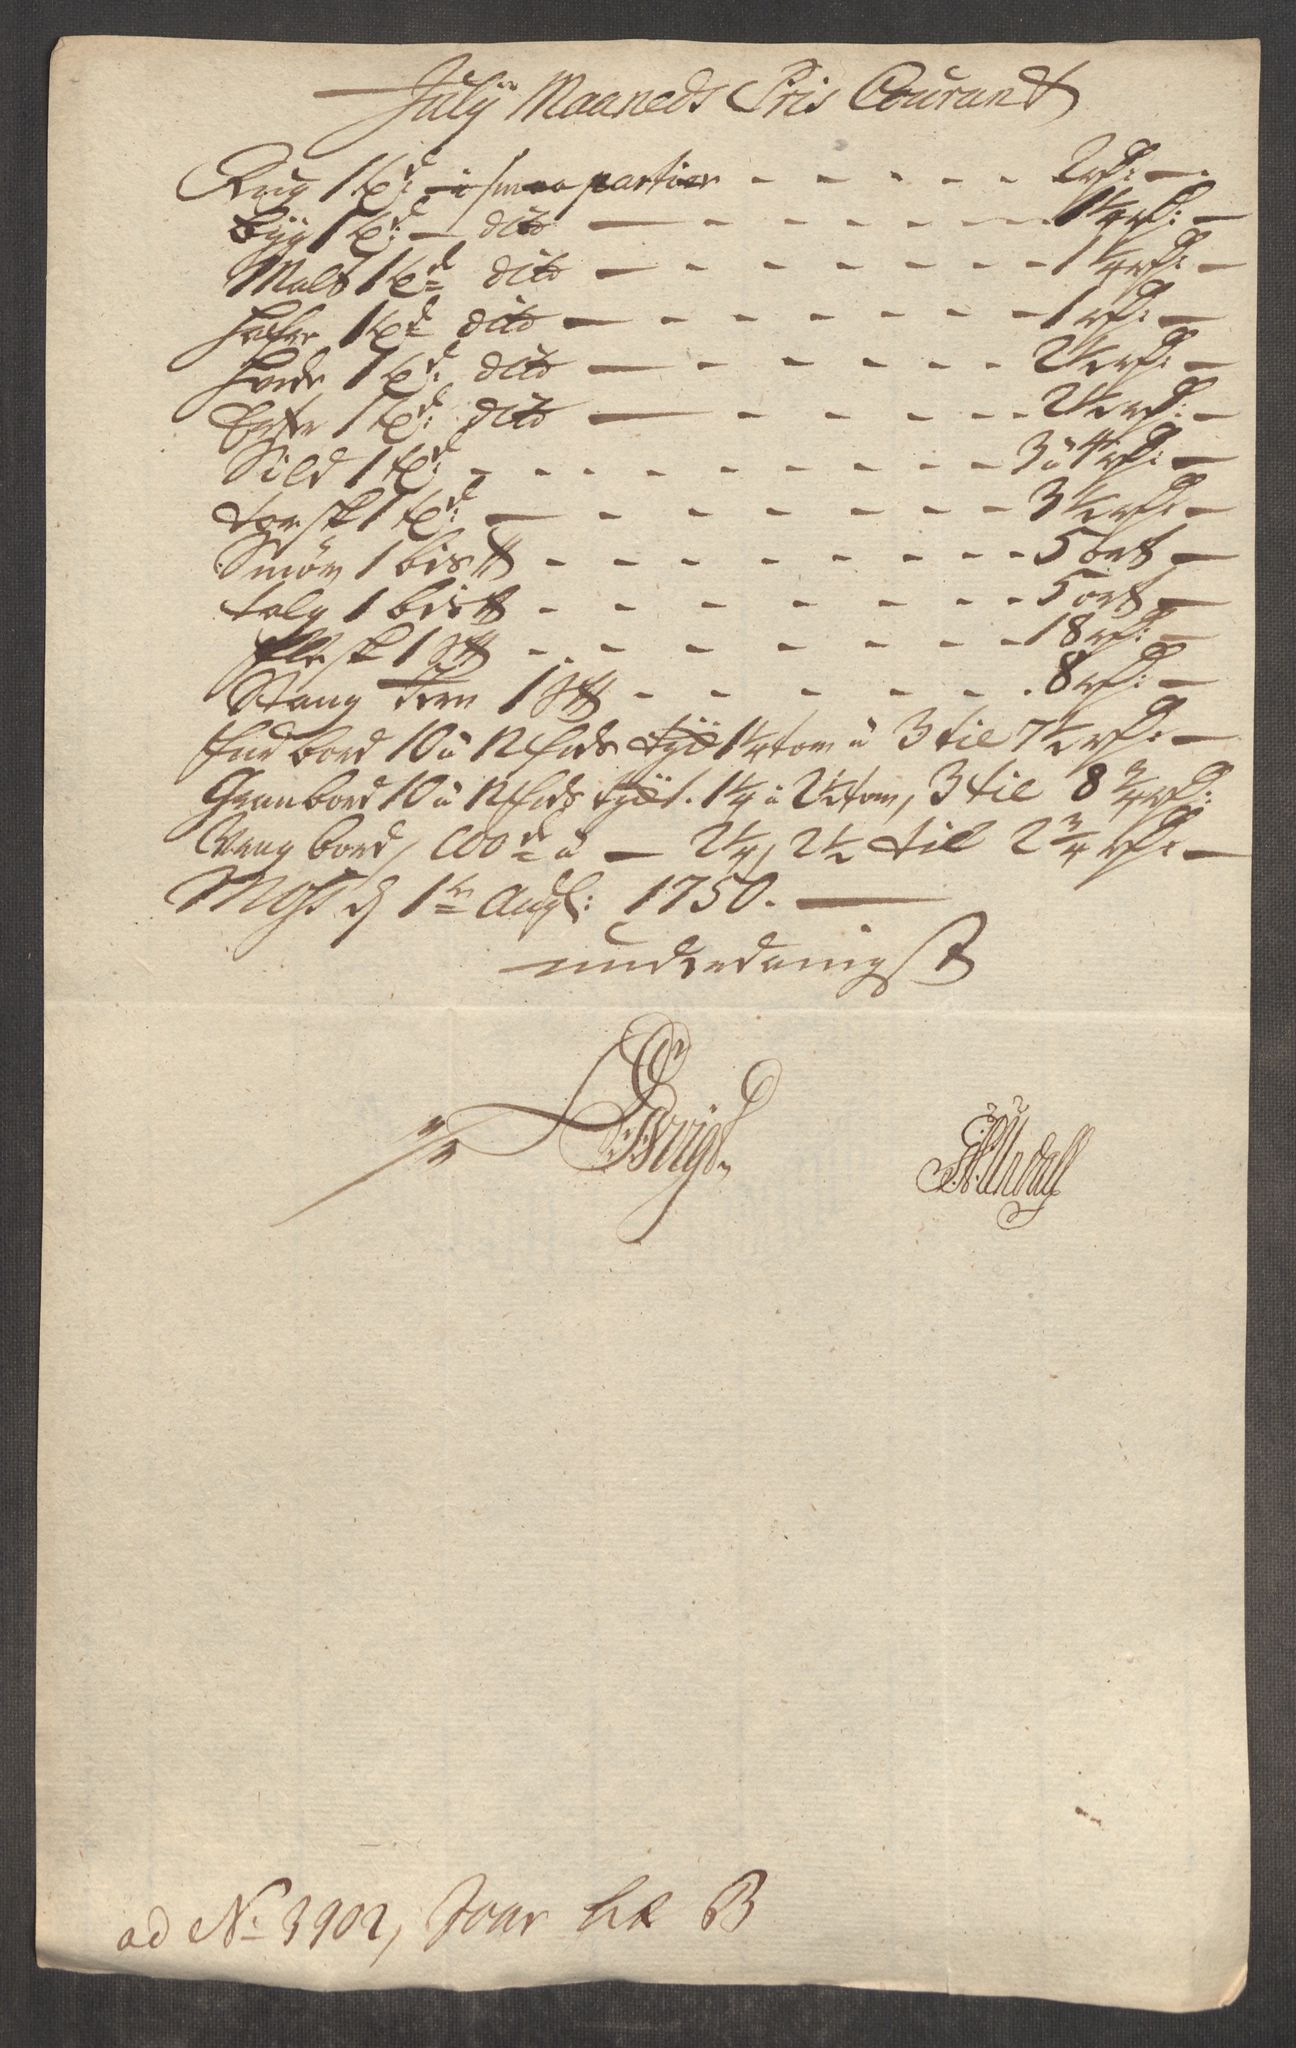 July Maaneds Pris Courant
Rug 1 td: i smaa partier - - - - - - 2 rd: -
Byg 1 td: - dito - - - - - - 1¼ rd: -
Malt 1 td dito - - - - - - 1¼ rd: -
Hafre 1 td dito - - - - - - 1 rd: -
Hvede 1 td: dito - - - - - - 2½ rd: -
Erter 1 td: dito - - - - - - 2½ rd: -
Sild 1 td: - - - - - - 3 á 4 rd: -
Torsk 1 td: - - - - - - 3½ rd: -
Smör 1 bis℔ - - - - - - 5 ort -
talg 1 bis℔ - - - - - - 5 ort -
Flesk 1 S℔ - - - - - - 18 rd: -
Stang Jern 1 S℔ - - - - - - 8 rd: -
Fue bord 10 á 12 fods tyk 1¼ tom á 3 til 7½ rd: -
Gran bord 10 á 12 fods tyk 1. 1¼ á 2½ tom, 3 til 8¾ rd:
Vrag bord, 100d á - 2¼, 2½ til 2¾ rd: -
Moss d 1te Aug: 1750. -
underdanigst
ad No 3902, Jour
B